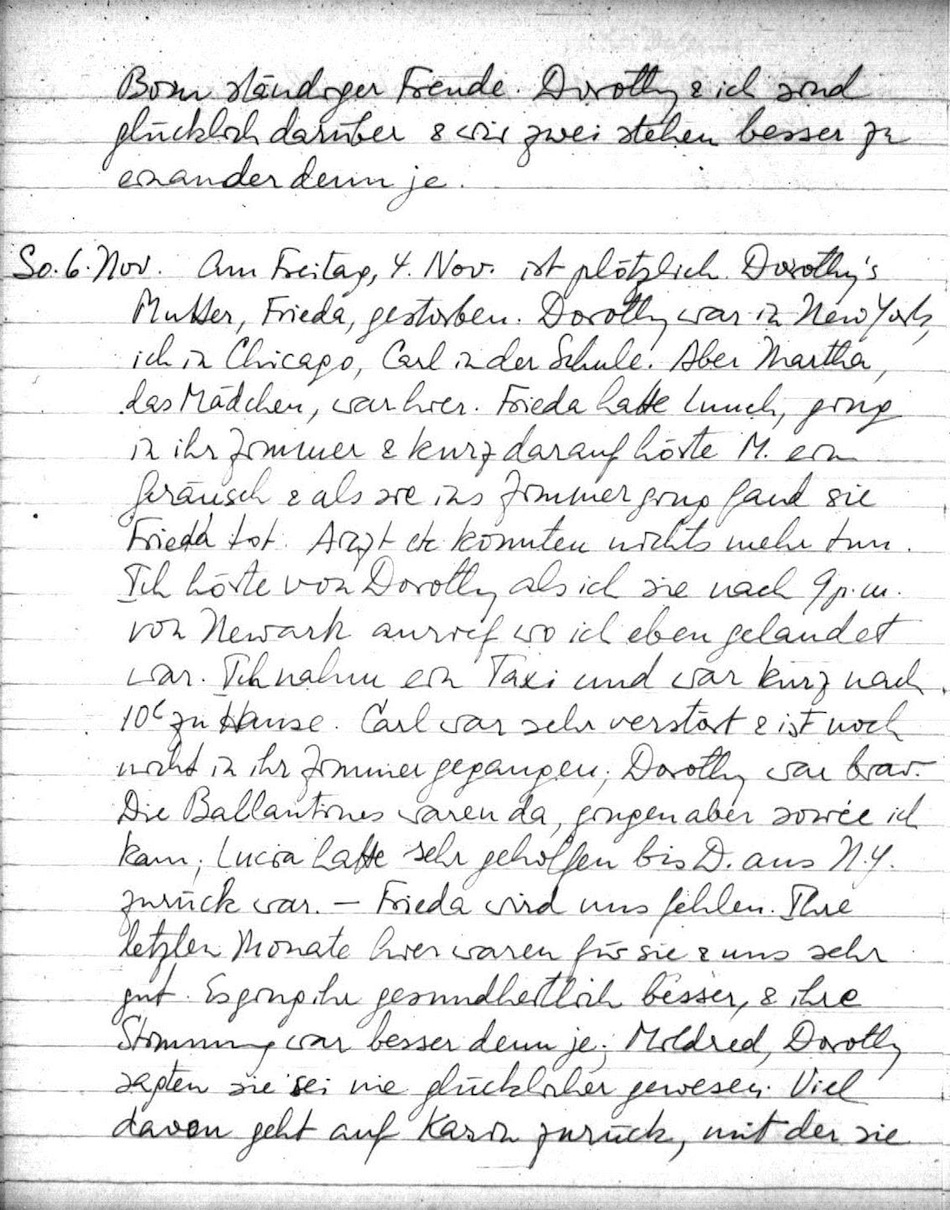 Born ständiger Freude. Dorothy & ich sind
glücklich darüber & wir zwei stehen besser zu
einander denn je.
So. 6. Nov. Am Freitag, 4. Nov. ist plötzlich Dorothy's
Mutter, Frieda, gestorben. Dorothy war in New York,
ich in Chicago, Carl in der Schule. Aber Martha,
das Mädchen, war hier. Frieda hatte Lunch, ging
in ihr Zimmer & kurz darauf hörte M. ein
Geräusch & als sie ins Zimmer ging fand sie
Frieda tot. Arzt etc konnten nichts mehr tun.
Ich hörte von Dorothy als ich sie nach 9 p.m.
von Newark anrief wo ich eben gelandet
war. Ich nahm ein Taxi und war kurz nach
10 zu Hause. Carl war sehr verstört & ist noch
nicht in ihr Zimmer gegangen; Dorothy war brav.
Die Ballantines waren da, gingen aber sowie ich
kam; Lucia hatte sehr geholfen bis D. aus N.Y.
zurück war. – Frieda wird uns fehlen. Ihre
letzten Monate hier waren für sie & uns sehr
gut. Es ging ihr gesundheitlich besser, & ihre
Stimmung war besser denn je; Mildred, Dorothy
sagten sie sei nie glücklicher gewesen. Viel
davon geht auf Karin zurück, mit der sie